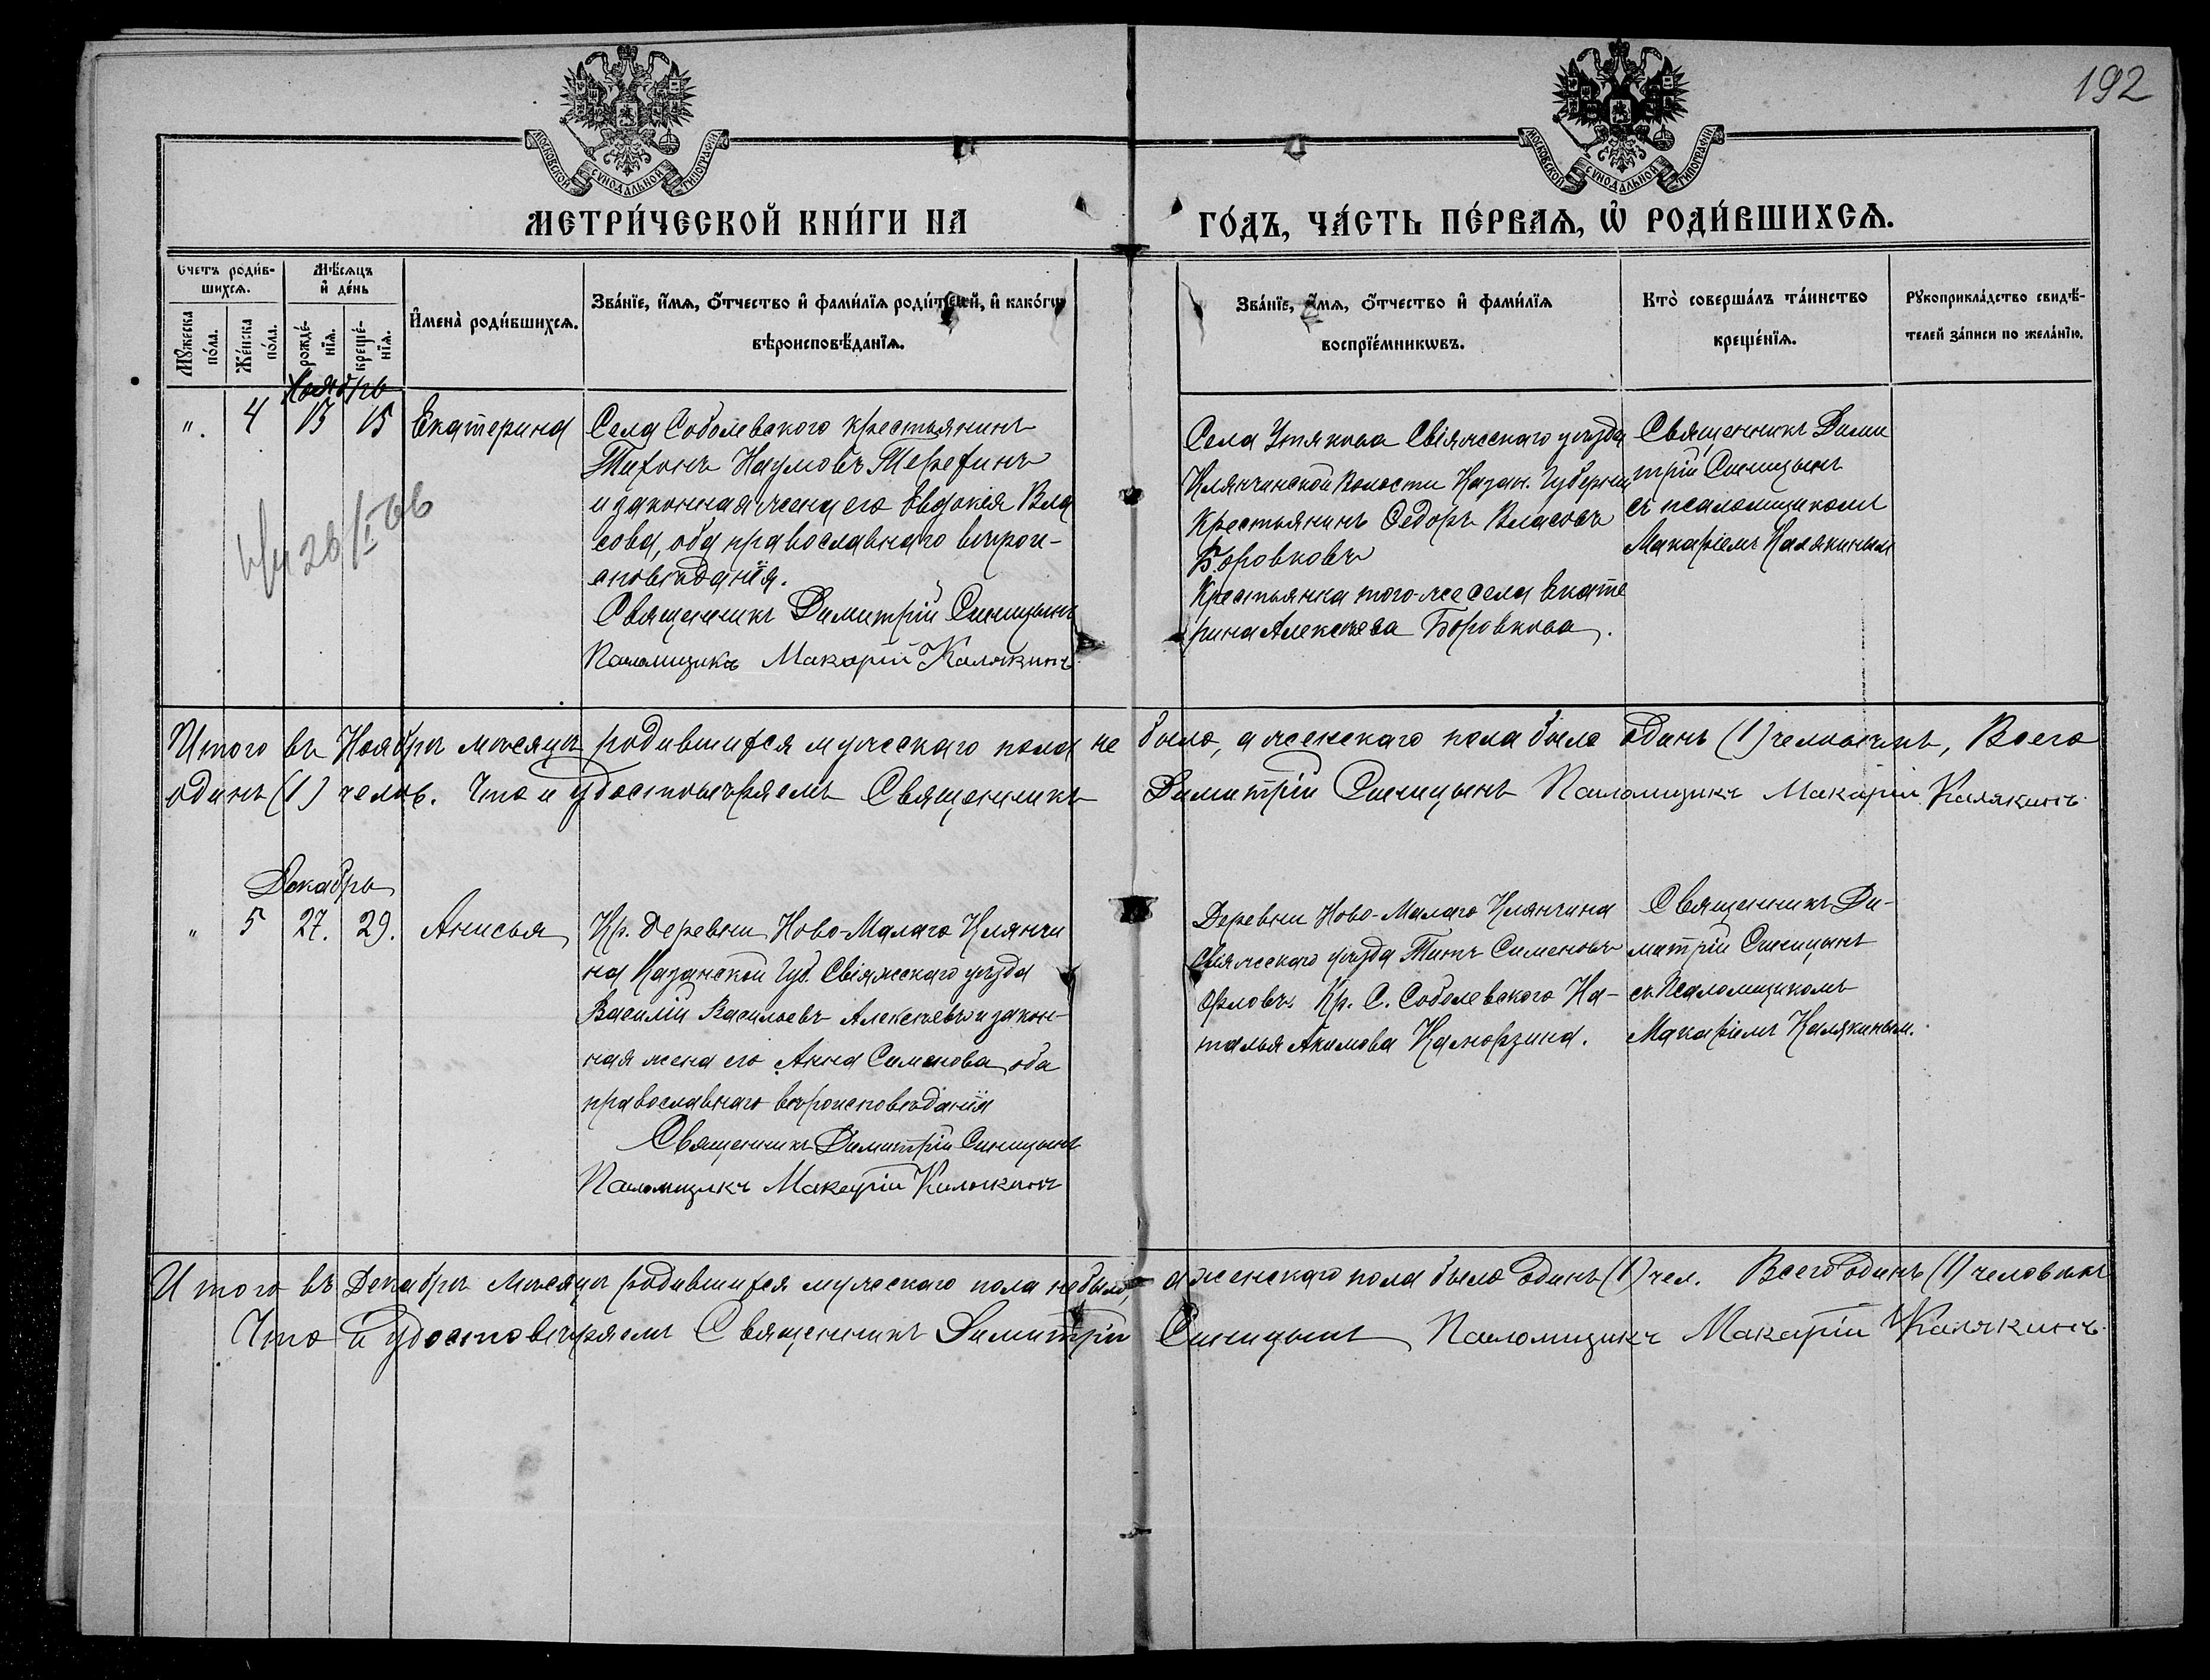 192
МОСКОВСКОЙ СѴНОДАЛЬНОЙ ТИПОГРАФІИ
МОСКОВСКОЙ СѴНОДАЛЬНОЙ ТИПОГРАФІИ
МЕТРИ́ЧЕСКОЙ КНИ́ГИ НА ГО́ДЪ, ЧА́СТЬ ПЕ́РВАѦ, Ѽ РОДИ́ВШИХСѦ.
Счетъ роди́в-
шихсѧ.
Мꙋжеска
по́ла.
Же́нска
по́ла.
Мѣ́сѧцъ
и҆ де́нь
рожде́-
нїѧ.
креще́-
нїѧ.
И҆мена̀ роди́вшихсѧ.
Зва́нїе, и҆́мѧ, ѻ҆́тчество и҆ фами́лїѧ роди́телей, и҆ како́гѡ
вѣроисповѣ́данїѧ.
Зва́нїе, и҆́мѧ, ѻ҆́тчество и҆ фами́лїѧ
воспрїе́мникѡвъ.
Кто̀ соверша́лъ та́инство
креще́нїѧ.
Рꙋкоприкла́дство свидѣ́-
телей за́писи по жела́нїю.
Ноябрь
". 4 13 15 Екатерина
Села Соболевского крестьянинъ
Тихонъ Наумовъ Терехинъ
и законная жена его Евдокія Вла
сова, оба православнаго вѣрои-
сповѣданія.
Священникъ Димитрій Синицынъ
Псаломщикъ Макарій Калякинъ
Села Утякова Свіяжскаго уѣзда
Клянчинской Волости Казан. Губерніи
Крестьянинъ Ѳедоръ Власовъ
Боровковъ
Крестьянка того-же села Екате
рина Алексѣева Боровкова.
Священникъ Дими
трій Синицынъ
съ псаломщикомъ
Макаріемъ Калякинымъ
Итого въ Ноябрѣ мѣсяцѣ родившихся мужескаго пола не было, а женскаго пола было одинъ (1) человѣкъ, Всего
одинъ (1) челов. Что и удостовѣряемъ Священникъ Димитрій Синицынъ Псаломщикъ Макарій Калякинъ
Декабрь
" 5 27. 29. Анисья
Кр. деревни Ново-Малаго Клянчи
на Казанской Губ. Свіяжскаго уѣзда
Василій Васильевъ Алексѣевъ и закон-
ная жена его Анна Симонова, оба
православнаго вѣроисповѣданія
Священникъ Димитрій Синицынъ
Псаломщикъ Макарій Калякинъ
Деревни Ново-Малаго Клянчина
Свіяжскаго уѣзда Титъ Симоновъ
Орловъ. Кр. С. Соболевского На-
талья Акимова
Священникъ Ди-
митрій Синицынъ
съ Псаломщикомъ
Макаріемъ Калякиным.
Итого въ Декабрѣ мѣсяцѣ родившихся мужескаго пола небыло, а женскаго пола было одинъ (1) чел. Всего одинъ (1) человѣкъ
Что и удостовѣряемъ Священникъ Димитрій Синицынъ Псаломщикъ Макарій Калякинъ